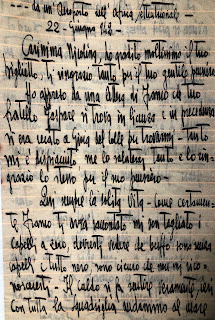 ---- da un'Aeroporto dell'Africa Settentrionale -
22 - Giugno 942 -
Carissima Nicolina, ho gradito moltissimo il tuo
biglietto, ti ringrazio tanto per il tuo gentile pensiero
Ho appreso da una lettera di Franco che tuo
fratello Gaspare si trova in Grecia e in precedenza
si era recato a per trovarmi - tanto
mi è dispiaciuto me lo saluterai tanto e lo rin-
grazio lo stesso per il suo pensiero -
Qui sempre la solita vita - Come certamen-
te Franco ti avrà raccontato mi son tagliato i
capelli a zero, dovresti vedere che buffo sono senza
capelli, e tutto nero sono sicuro che non mi rico-
nosceresti - Il caldo si fa sentire veramente, ieri
con tutta la andammo al mare